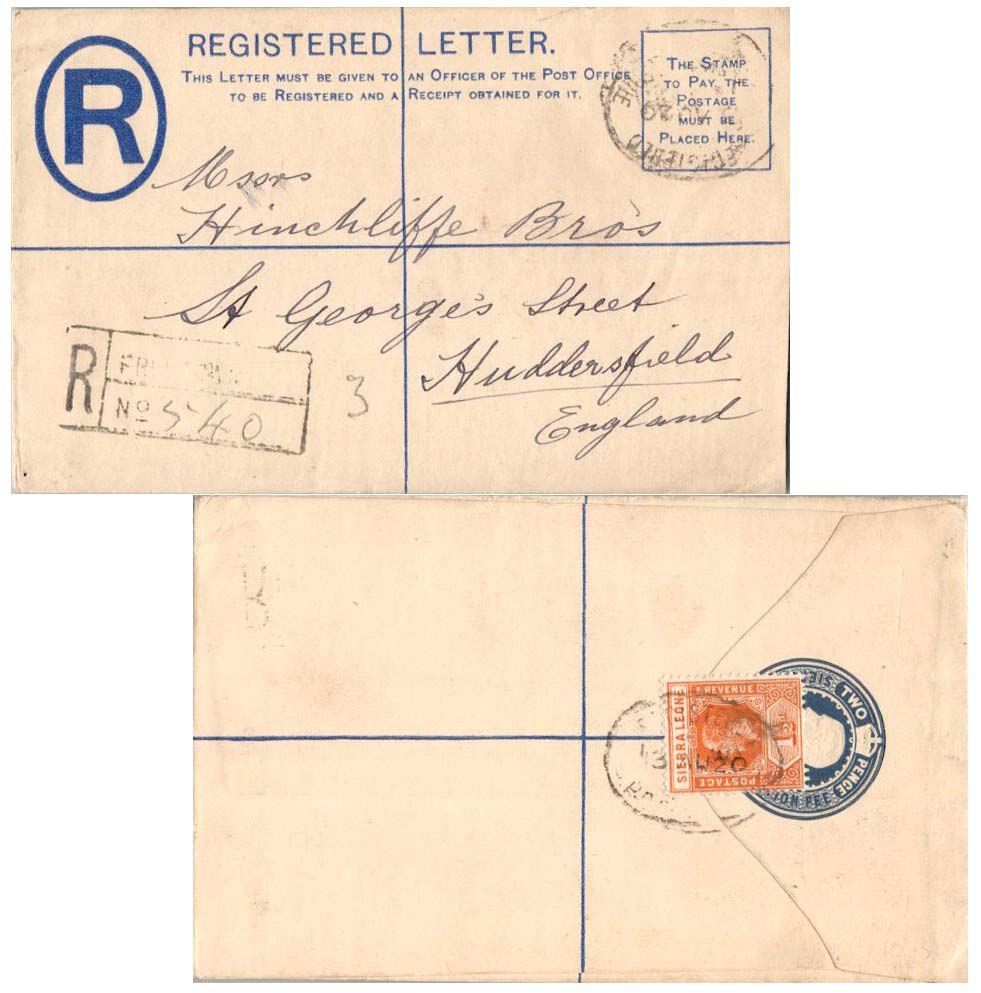 R
REGISTERED LETTER.
THIS LETTER MUST BE GIVEN TO AN OFFICER OF THE POST OFFICE
TO BE REGISTERED AND A RECEIPT OBTAINED FOR IT.
THE STAMP
TO PAY THE
POSTAGE
MUST BE
PLACED HERE.
Messrs
Hinchliffe Bro's
St George's Street
Huddersfield
England
R
No 540
3
SIERRA LEONE
POSTAGE
& REVENUE
TWO
PENCE